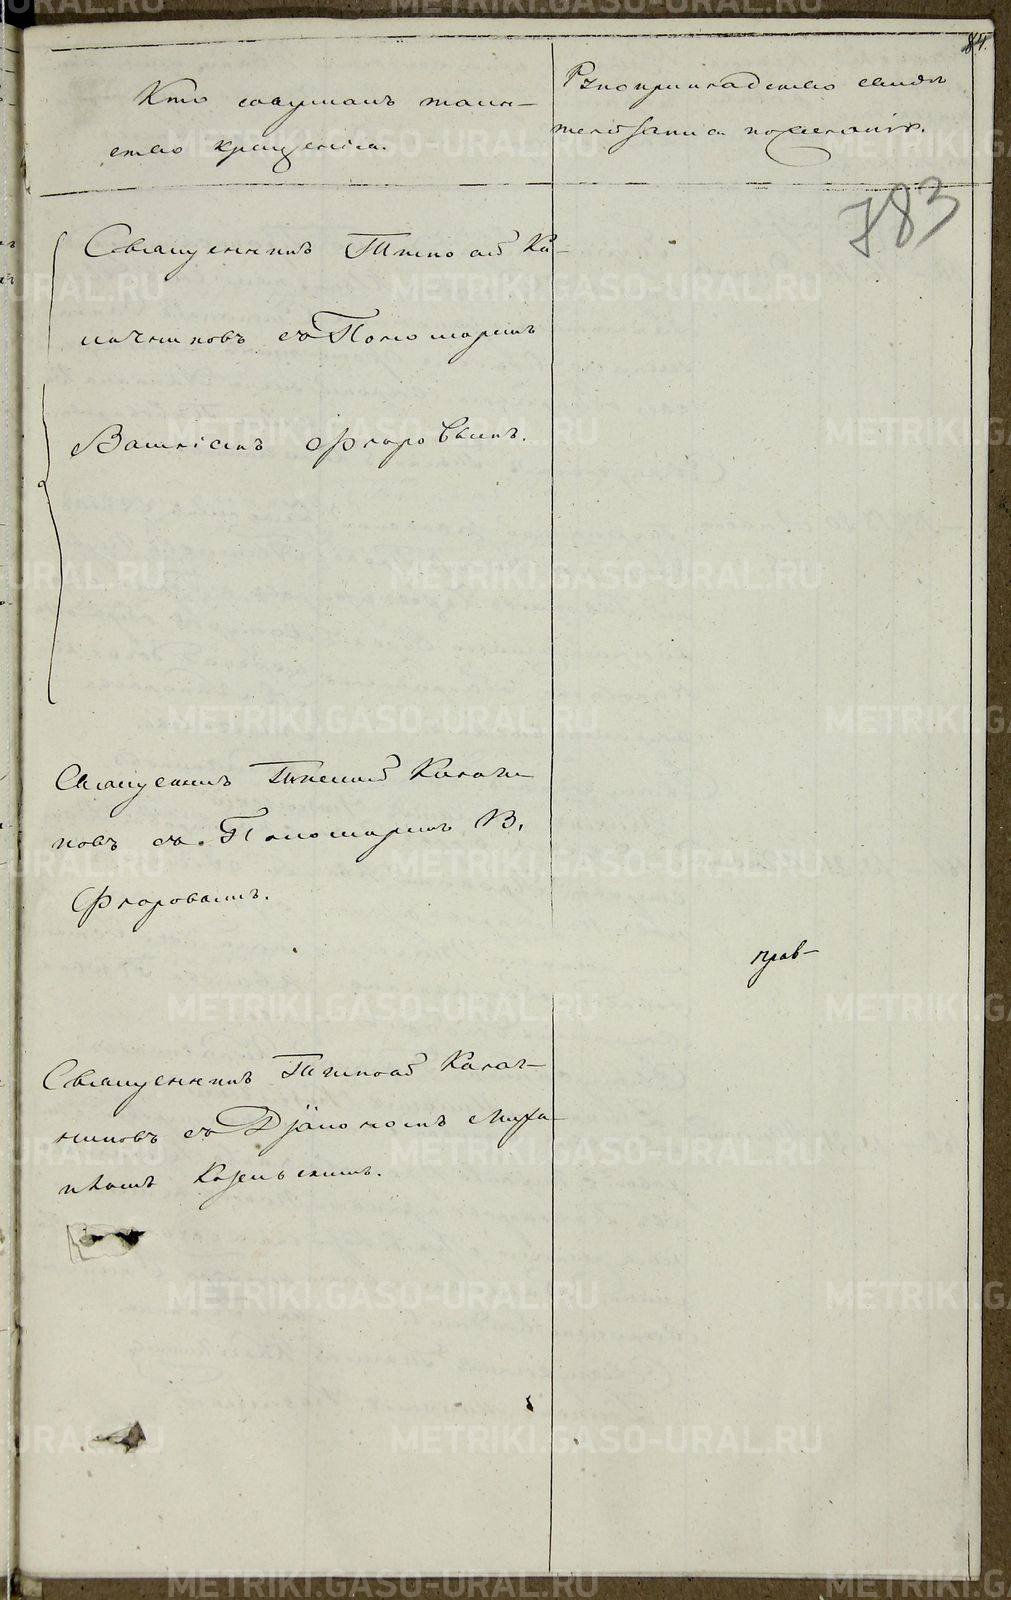 84.
Кто совершалъ таин-
ство крещенія.
Рукоприкладство свидѣ
телей записи по желанію.
783
Священникъ Тимофей Ка-
лачниковъ съ Пономаремъ
Василіемъ Флоровымъ.
Священникъ Тимофей Калачни
ковъ съ Пономаремъ В.
Флоровымъ.
прав-
Священникъ Тимофей Калач-
никовъ съ Діакономъ Миха
иломъ
METRIKI.GASO-URAL.RU